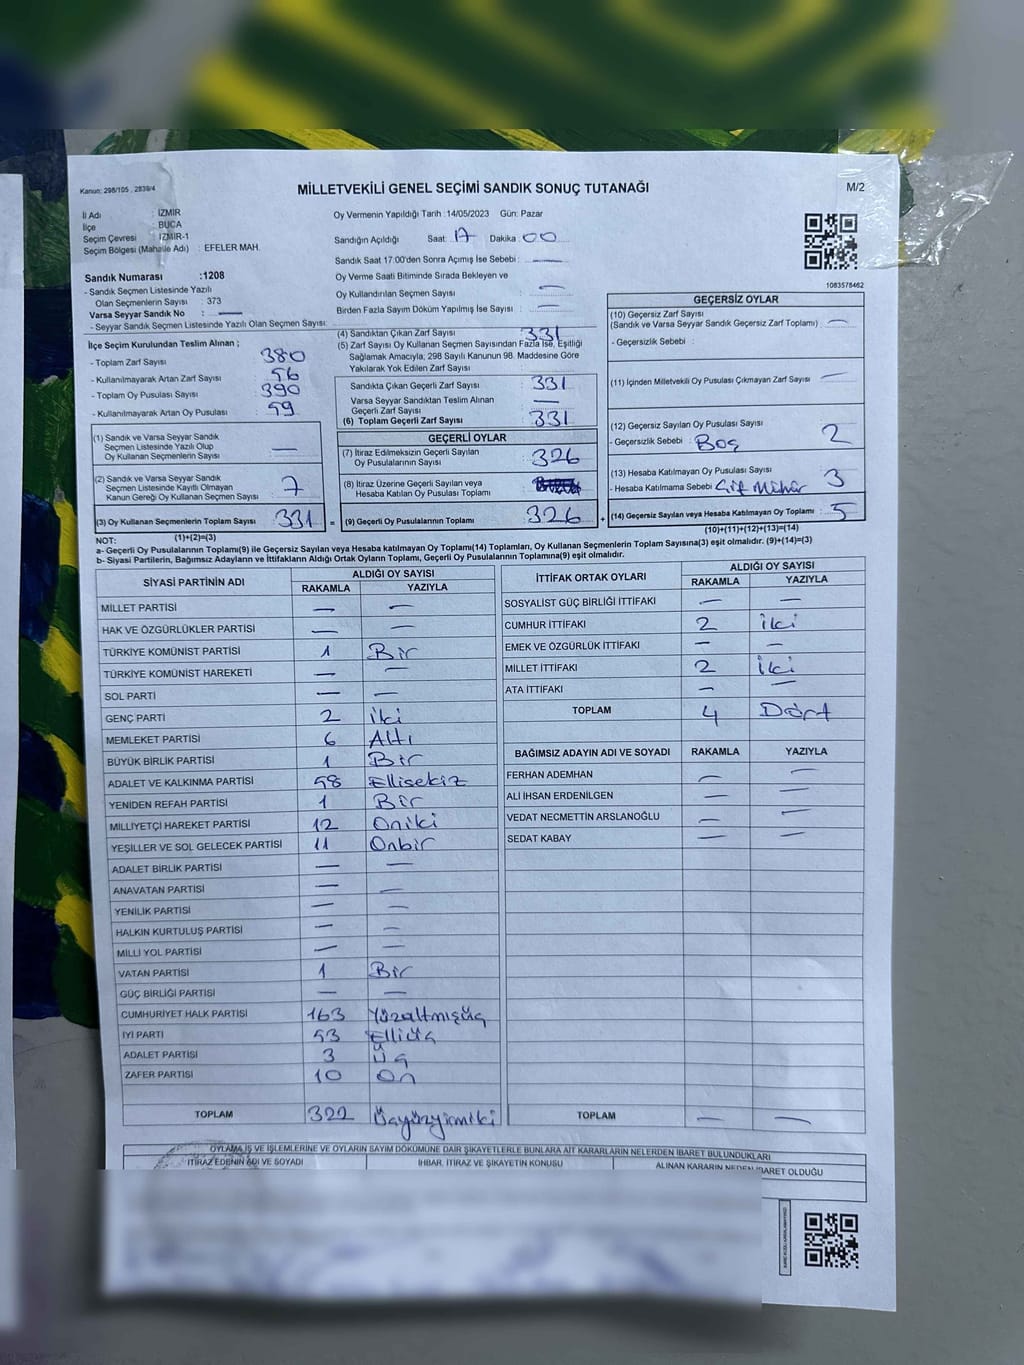 Kanun: 298/105 , 2839/4
MİLLETVEKİLİ GENEL SEÇİMİ SANDIK SONUÇ TUTANAĞI
M/2
İl Adı : İZMİR
İlçe : BUCA
Seçim Çevresi : İZMİR-1
Seçim Bölgesi (Mahalle Adı) : EFELER MAH.
Sandık Numarası :1208
- Sandık Seçmen Listesinde Yazılı
Olan Seçmenlerin Sayısı : 373
Varsa Seyyar Sandık No : —
- Seyyar Sandık Seçmen Listesinde Yazılı Olan Seçmen Sayısı:
İlçe Seçim Kurulundan Teslim Alınan ;
- Toplam Zarf Sayısı : 380
- Kullanılmayarak Artan Zarf Sayısı : 56
- Toplam Oy Pusulası Sayısı : 390
- Kullanılmayarak Artan Oy Pusulası : 59
(1) Sandık ve Varsa Seyyar Sandık
Seçmen Listesinde Yazılı Olup
Oy Kullanan Seçmenlerin Sayısı : —
(2) Sandık ve Varsa Seyyar Sandık
Seçmen Listesinde Kayıtlı Olmayan
Kanun Gereği Oy Kullanan Seçmen Sayısı : 7
(3) Oy Kullanan Seçmenlerin Toplam Sayısı : 331
(1)+(2)=(3)
Oy Vermenin Yapıldığı Tarih :14/05/2023 Gün: Pazar
Sandığın Açıldığı Saat: 17 Dakika: 00
Sandık Saat 17:00'den Sonra Açımış İse Sebebi : —
Oy Verme Saati Bitiminde Sırada Bekleyen ve
Oy Kullandırılan Seçmen Sayısı : —
Birden Fazla Sayım Döküm Yapılmış İse Sayısı : —
(4) Sandıktan Çıkan Zarf Sayısı : 331
(5) Zarf Sayısı Oy Kullanan Seçmen Sayısından Fazla İse, Eşitliği
Sağlamak Amacıyla; 298 Sayılı Kanunun 98. Maddesine Göre
Yakılarak Yok Edilen Zarf Sayısı :
Sandıkta Çıkan Geçerli Zarf Sayısı : 331
Varsa Seyyar Sandıktan Teslim Alınan
Geçerli Zarf Sayısı : —
(6) Toplam Geçerli Zarf Sayısı : 331
GEÇERLİ OYLAR
(7) İtiraz Edilmeksizin Geçerli Sayılan
Oy Pusulalarının Sayısı : 326
(8) İtiraz Üzerine Geçerli Sayılan veya
Hesaba Katılan Oy Pusulası Toplamı :
= (9) Geçerli Oy Pusulalarının Toplamı : 326 +
1083578462
GEÇERSİZ OYLAR
(10) Geçersiz Zarf Sayısı
(Sandık ve Varsa Seyyar Sandık Geçersiz Zarf Toplamı) : —
- Geçersizlik Sebebi :
(11) İçinden Milletvekili Oy Pusulası Çıkmayan Zarf Sayısı : —
(12) Geçersiz Sayılan Oy Pusulası Sayısı
- Geçersizlik Sebebi : Boş 2
(13) Hesaba Katılmayan Oy Pusulası Sayısı
- Hesaba Katılmama Sebebi : Çift Mühür 3
(14) Geçersiz Sayılan veya Hesaba Katılmayan Oy Toplamı : 5
(10)+(11)+(12)+(13)=(14)
NOT:
a- Geçerli Oy Pusulalarının Toplamı(9) ile Geçersiz Sayılan veya Hesaba katılmayan Oy Toplamı(14) Toplamları, Oy Kullanan Seçmenlerin Toplam Sayısına(3) eşit olmalıdır. (9)+(14)=(3)
b- Siyasi Partilerin, Bağımsız Adayların ve İttifakların Aldığı Ortak Oyların Toplamı, Geçerli Oy Pusulalarının Toplamına(9) eşit olmalıdır.
SİYASİ PARTİNİN ADI ALDIĞI OY SAYISI
RAKAMLA YAZIYLA
MİLLET PARTİSİ — —
HAK VE ÖZGÜRLÜKLER PARTİSİ — —
TÜRKİYE KOMÜNİST PARTİSİ 1 Bir
TÜRKİYE KOMÜNİST HAREKETİ — —
SOL PARTİ — —
GENÇ PARTİ 2 İki
MEMLEKET PARTİSİ 6 Altı
BÜYÜK BİRLİK PARTİSİ 1 Bir
ADALET VE KALKINMA PARTİSİ 58 Ellisekiz
YENİDEN REFAH PARTİSİ 1 Bir
MİLLİYETÇİ HAREKET PARTİSİ 12 Oniki
YEŞİLLER VE SOL GELECEK PARTİSİ 11 Onbir
ADALET BİRLİK PARTİSİ — —
ANAVATAN PARTİSİ — —
YENİLİK PARTİSİ — —
HALKIN KURTULUŞ PARTİSİ — —
MİLLİ YOL PARTİSİ — —
VATAN PARTİSİ 1 Bir
GÜÇ BİRLİĞİ PARTİSİ — —
CUMHURİYET HALK PARTİSİ 163 Yüzaltmışüç
İYİ PARTİ 53 Elliüç
ADALET PARTİSİ 3 Üç
ZAFER PARTİSİ 10 On
TOPLAM 322 Üçyüzyirmiiki
İTTİFAK ORTAK OYLARI ALDIĞI OY SAYISI
RAKAMLA YAZIYLA
SOSYALİST GÜÇ BİRLİĞİ İTTİFAKI — —
CUMHUR İTTİFAKI 2 İki
EMEK VE ÖZGÜRLÜK İTTİFAKI — —
MİLLET İTTİFAKI 2 İki
ATA İTTİFAKI — —
TOPLAM 4 Dört
BAĞIMSIZ ADAYIN ADI VE SOYADI RAKAMLA YAZIYLA
FERHAN ADEMHAN — —
ALİ İHSAN ERDENİLGEN — —
VEDAT NECMETTİN ARSLANOĞLU — —
SEDAT KABAY — —
TOPLAM — —
OYLAMA İŞ VE İŞLEMLERİNE VE OYLARIN SAYIM DÖKÜMÜNE DAİR ŞİKAYETLERLE BUNLARA AİT KARARLARIN NELERDEN İBARET BULUNDUKLARI
İTİRAZ EDENİN ADI VE SOYADI İHBAR, İTİRAZ VE ŞİKAYETİN KONUSU ALINAN KARARIN NEDEN İBARET OLDUĞU